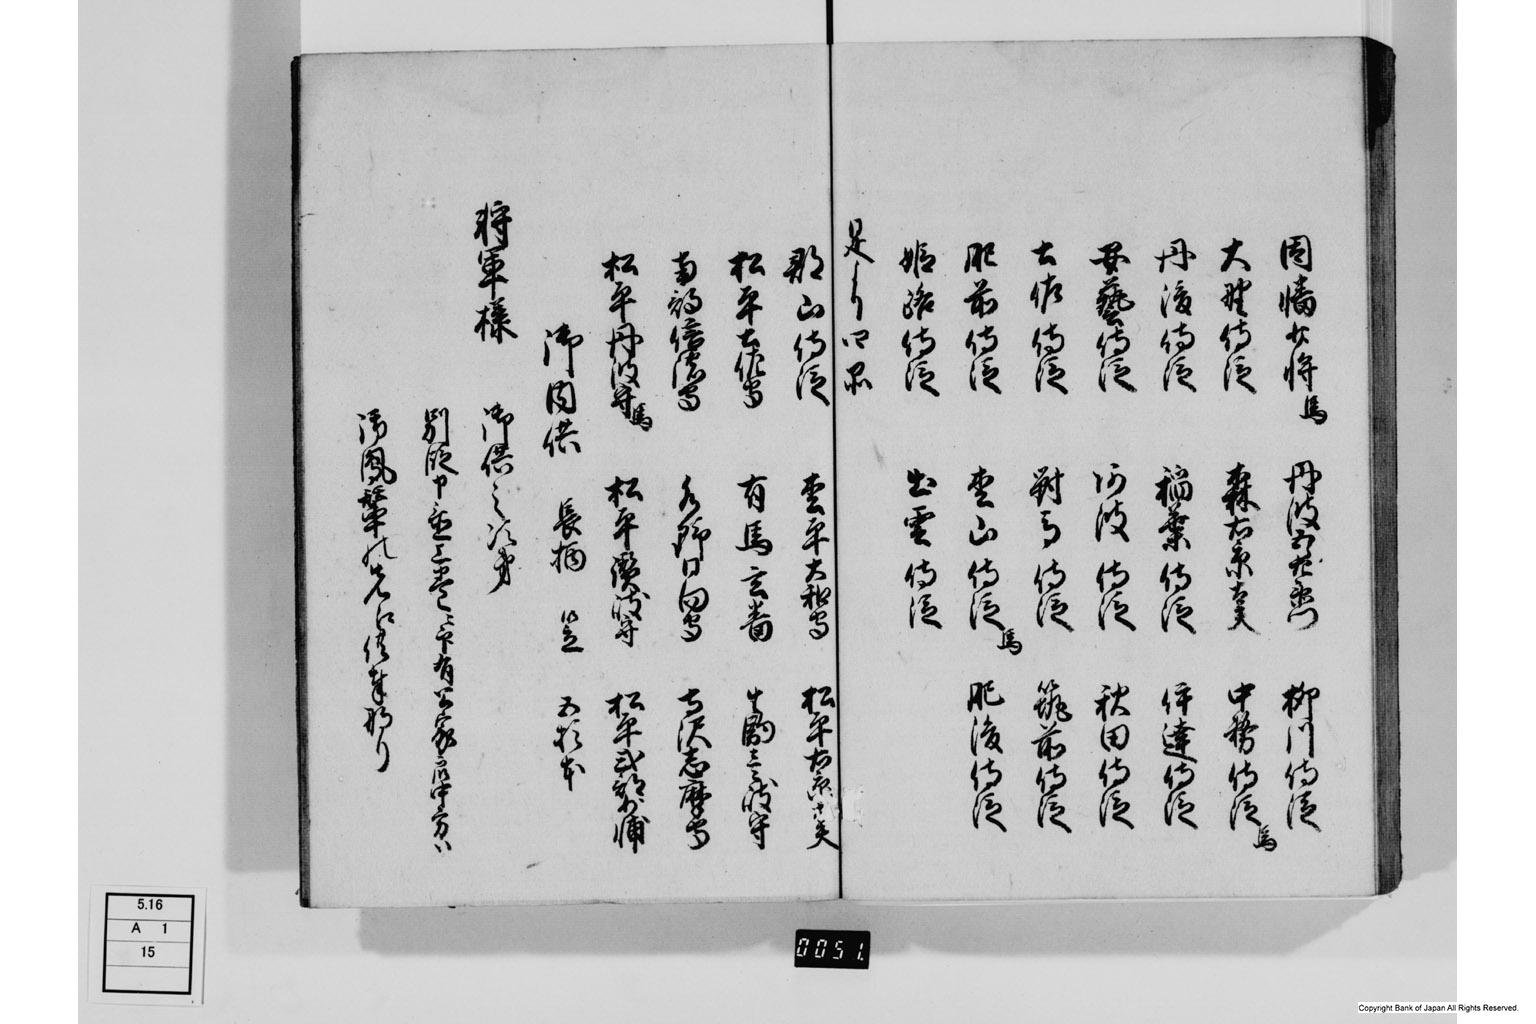 因幡少将 馬 丹波五郎左衛門 柳川侍従
大野侍従 森右京大夫 中務侍従 馬
丹後侍従 稲葉侍従 伊達侍従
安藝侍従 阿波侍従 秋田侍従
土佐侍従 對馬侍従 筑前侍従
肥前侍従 侍従 馬 肥後侍従
姫路侍従 出雲侍従
是より四品
郡山侍従 松平大和守 松平右京大夫
松平土佐守 有馬玄蕃 生駒壱岐守
南部信濃守 水野日向守 寺沢志摩守
松平丹波守 馬 松平讃岐守 松平式部大輔
御内供 長柄 笠 五拾本
将軍様 御供之次第
別段
御鳳輦
0051.
5.16
A 1
15
Copyright Bank of Japan All Rights Reserved.